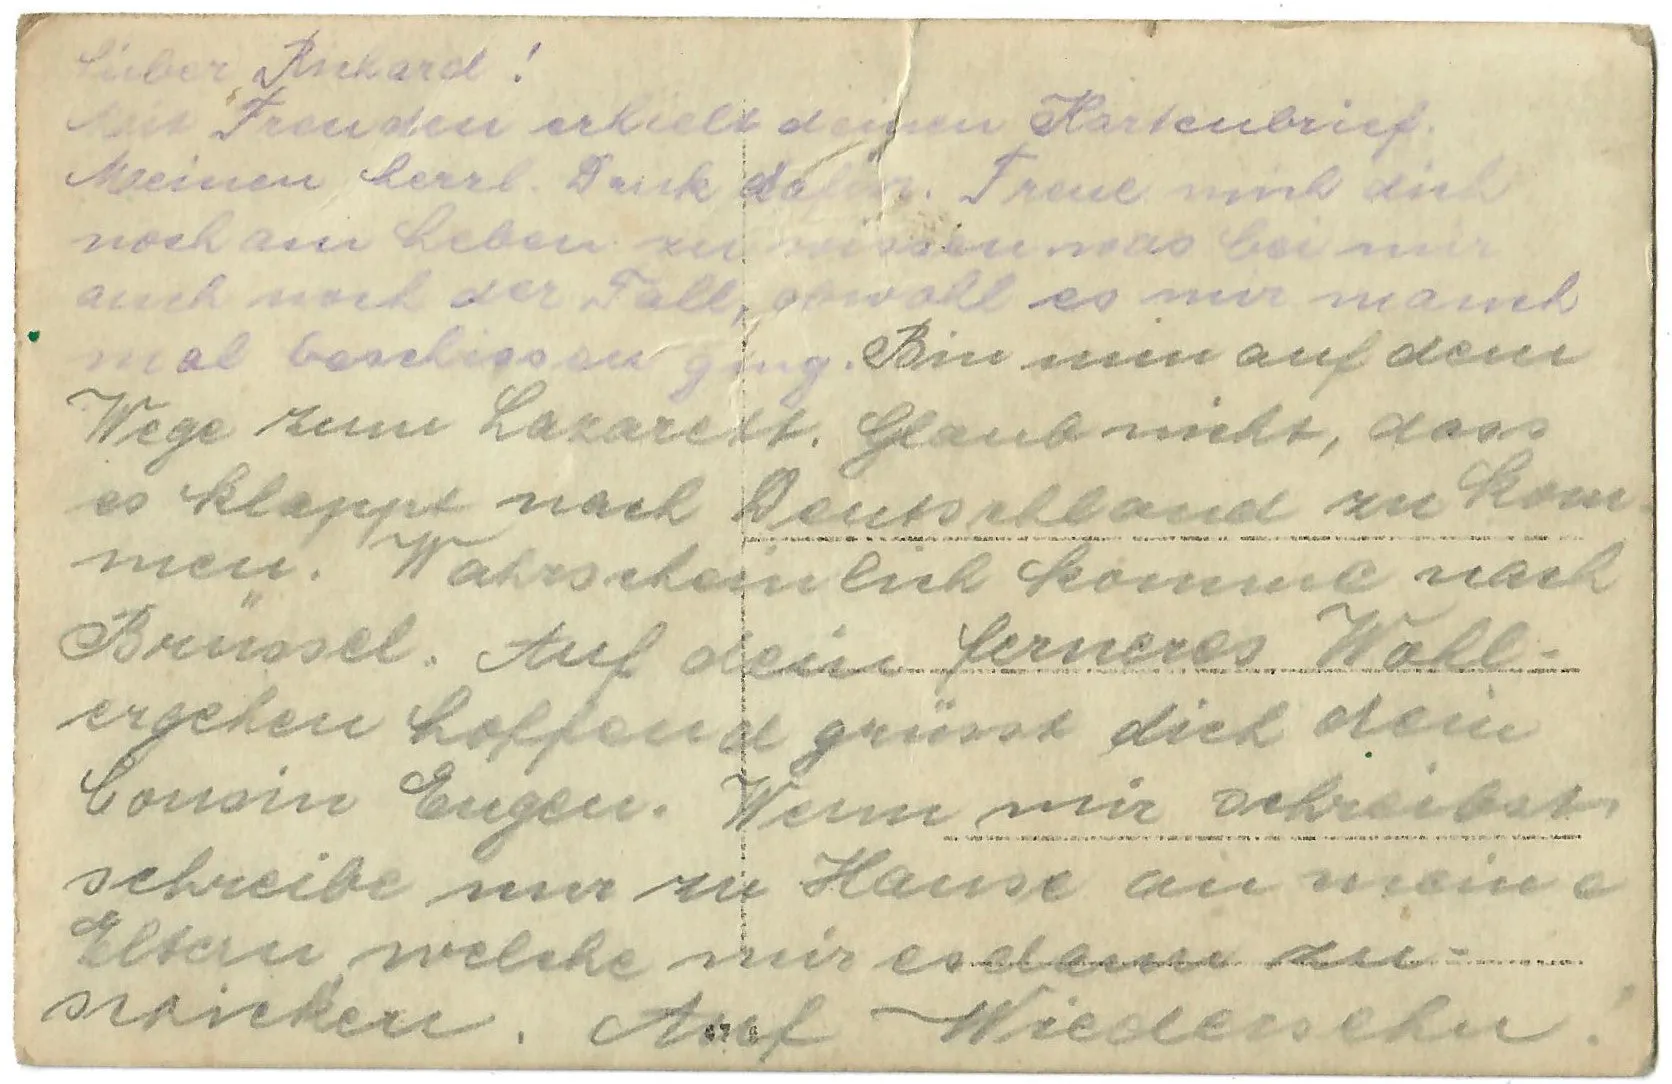 Lieber Richard!
Mit Freuden erhielt deinen Kartenbrief.
Meinen herzl. Dank dafür. Freue mich dich
noch am Leben zu wissen was bei mir
auch noch der Fall, obwohl es mir manch
mal beschissen ging. Bin nun auf dem
Wege zum Lazarett. Glaub nicht, dass
es klappt nach Deutschland zu kom-
men. Wahrscheinlich komme nach
Brüssel. Auf dein ferneres Wohl-
ergehen hoffend grüsst dich dein
Cousin Eugen. Wenn mir schreibst,
schreibe nur zu Hause an meine
Eltern, welche mir es dann zu-
schicken. Auf Wiedersehn!